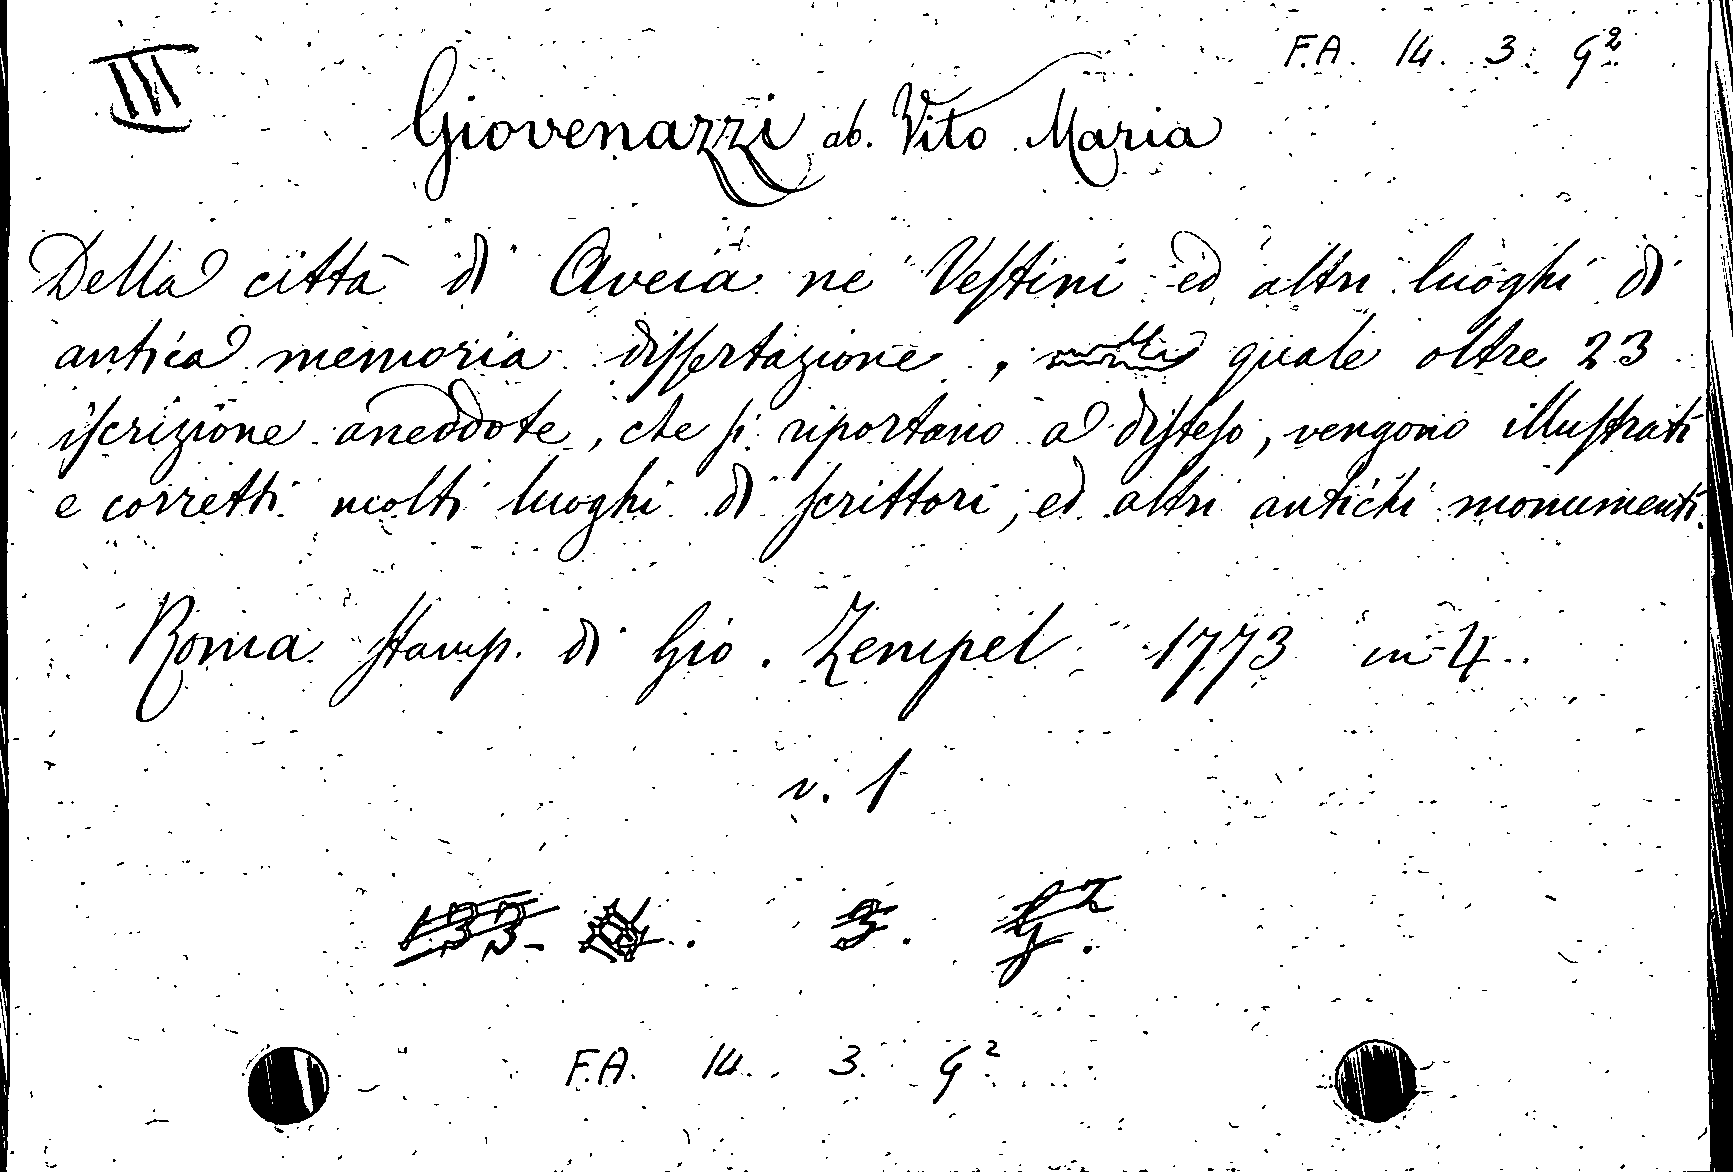 III
F.A. 14. 3. G²
Giovenazzi ab. Vito Maria
Della città di Aveia ne Vestini ed altri luoghi di
antica memoria dissertazione, nella quale oltre 23
iscrizione aneddote, che si riportano a disteso, vengono illustrati
e corretti molti luoghi di scrittori, ed altri antichi monumenti.
Roma stamp. di Gio. Zempel 1773 in 4.
v. 1
133. 3. G².
F.A. 14. 3. G²